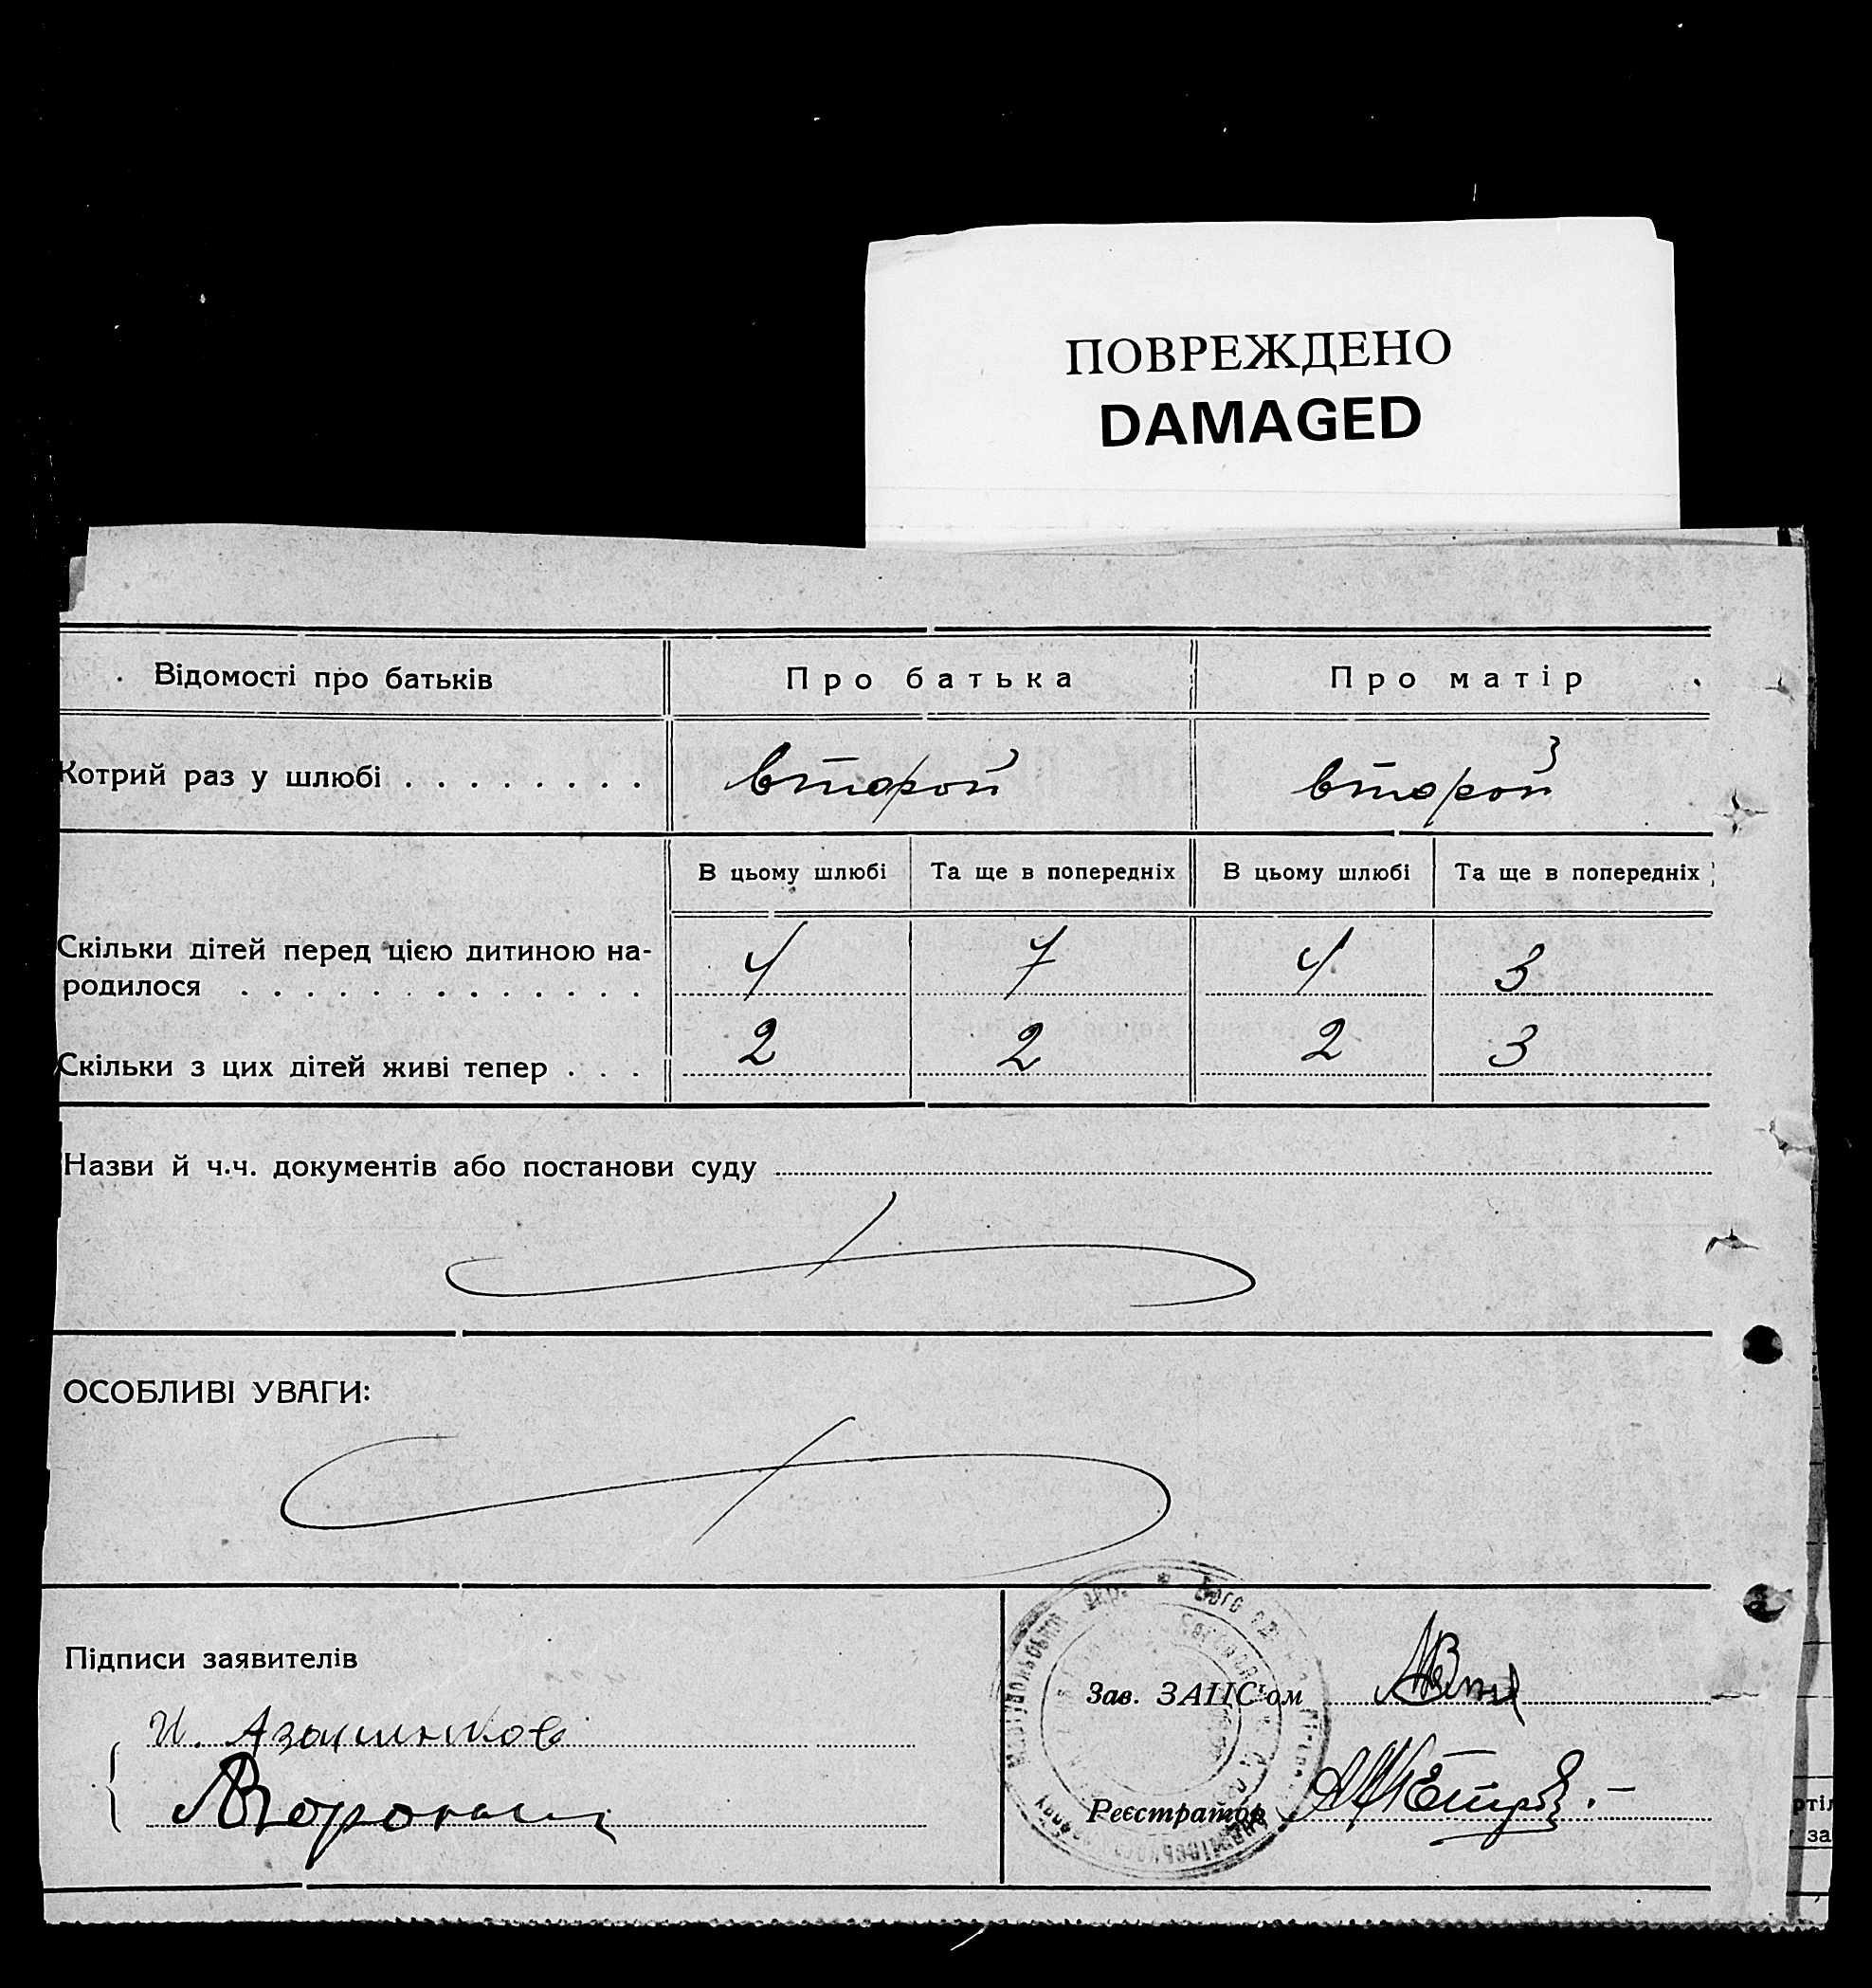 ПОВРЕЖДЕНО
DAMAGED
Відомості про батьків Про батька Про матір
Котрий раз у шлюбі . . . . . . . . второй второй
В цьому шлюбі Та ще в попередніх В цьому шлюбі Та ще в попередніх
Скільки дітей перед цією дитиною на-
родилося . . . . . . . . . . . . . 4 7 4 3
Скільки з цих дітей живі тепер . . . 2 2 2 3
Назви й ч.ч. документів або постанови суду
ОСОБЛИВІ УВАГИ:
Підписи заявителів
Зав. ЗАЦС'ом
Реєстратор